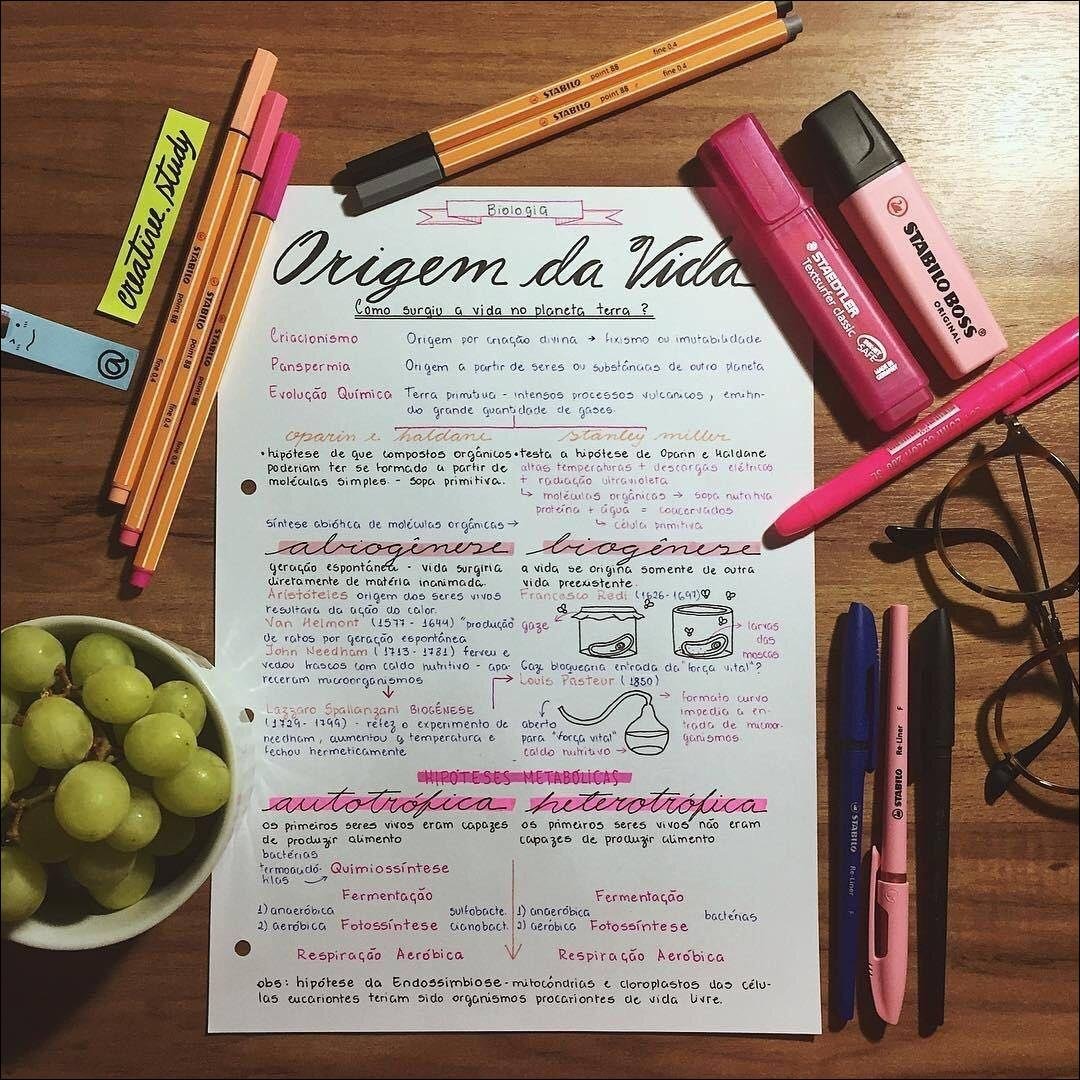 STABILO point 88 fine 0.4
STABILO point 88 fine 0.4
creative.study
@
STABILO point 88 fine 0.4
STABILO point 88 fine 0.4
STABILO point 88 fine 0.4
STAEDTLER
Textsurfer classic
INKJET SAFE
MADE IN GERMANY
STABILO BOSS
ORIGINAL
Biologia
Origem da Vida
Como surgiu a vida no planeta terra?
Criacionismo Origem por criação divina → fixismo ou imutabilidade
Panspermia Origem a partir de seres ou substâncias de outro planeta
Evolução Química Terra primitiva - intensos processos vulcânicos, emitin-
do grande quantidade de gases.
oparin e haldane
• hipótese de que compostos orgânicos
poderiam ter se formado a partir de
moléculas simples. - sopa primitiva.
síntese abiótica de moléculas orgânicas →
stanley miller
• testa a hipótese de Oparin e Haldane
altas temperaturas + descargas elétricas
+ radiação ultravioleta
↳ moléculas orgânicas → sopa nutritiva
proteína + água = coacervados
↳ célula primitiva
abiogênese
geração espontânea - vida surgiria
diretamente de matéria inanimada.
Aristóteles origem dos seres vivos
resultava da ação do calor.
Van Helmont (1577 - 1644) "produção"
de ratos por geração espontânea
John Needham (1713 - 1781) ferveu e
vedou frascos com caldo nutritivo - apa-
receram microorganismos
Lazzaro Spallanzani BIOGÊNESE
(1729 - 1799) - refez o experimento de
needham, aumentou a temperatura e
fechou hermeticamente
biogênese
a vida se origina somente de outra
vida preexistente.
Francesco Redi (1626 - 1697)
gaze
larvas
das
moscas
Gaze bloquearia entrada da "força vital"?
Louis Pasteur (1850)
aberto
para "força vital"
caldo nutritivo →
formato curvo
impedia a en-
trada de micror-
ganismos
HIPÓTESES METABÓLICAS
autotrófica
os primeiros seres vivos eram capazes
de produzir alimento
bactérias
termoacidó-
filas → Quimiossíntese
Fermentação
1) anaeróbica sulfobacte.
2) aeróbica Fotossíntese cianobact.
Respiração Aeróbica
heterotrófica
os primeiros seres vivos não eram
capazes de produzir alimento
Fermentação
1) anaeróbica bactérias
2) aeróbica Fotossíntese
Respiração Aeróbica
obs: hipótese da Endossimbiose - mitocôndrias e cloroplastos das célu-
las eucariontes teriam sido organismos procariontes de vida livre.
STABILO Re-Liner F
STABILO Re-Liner F